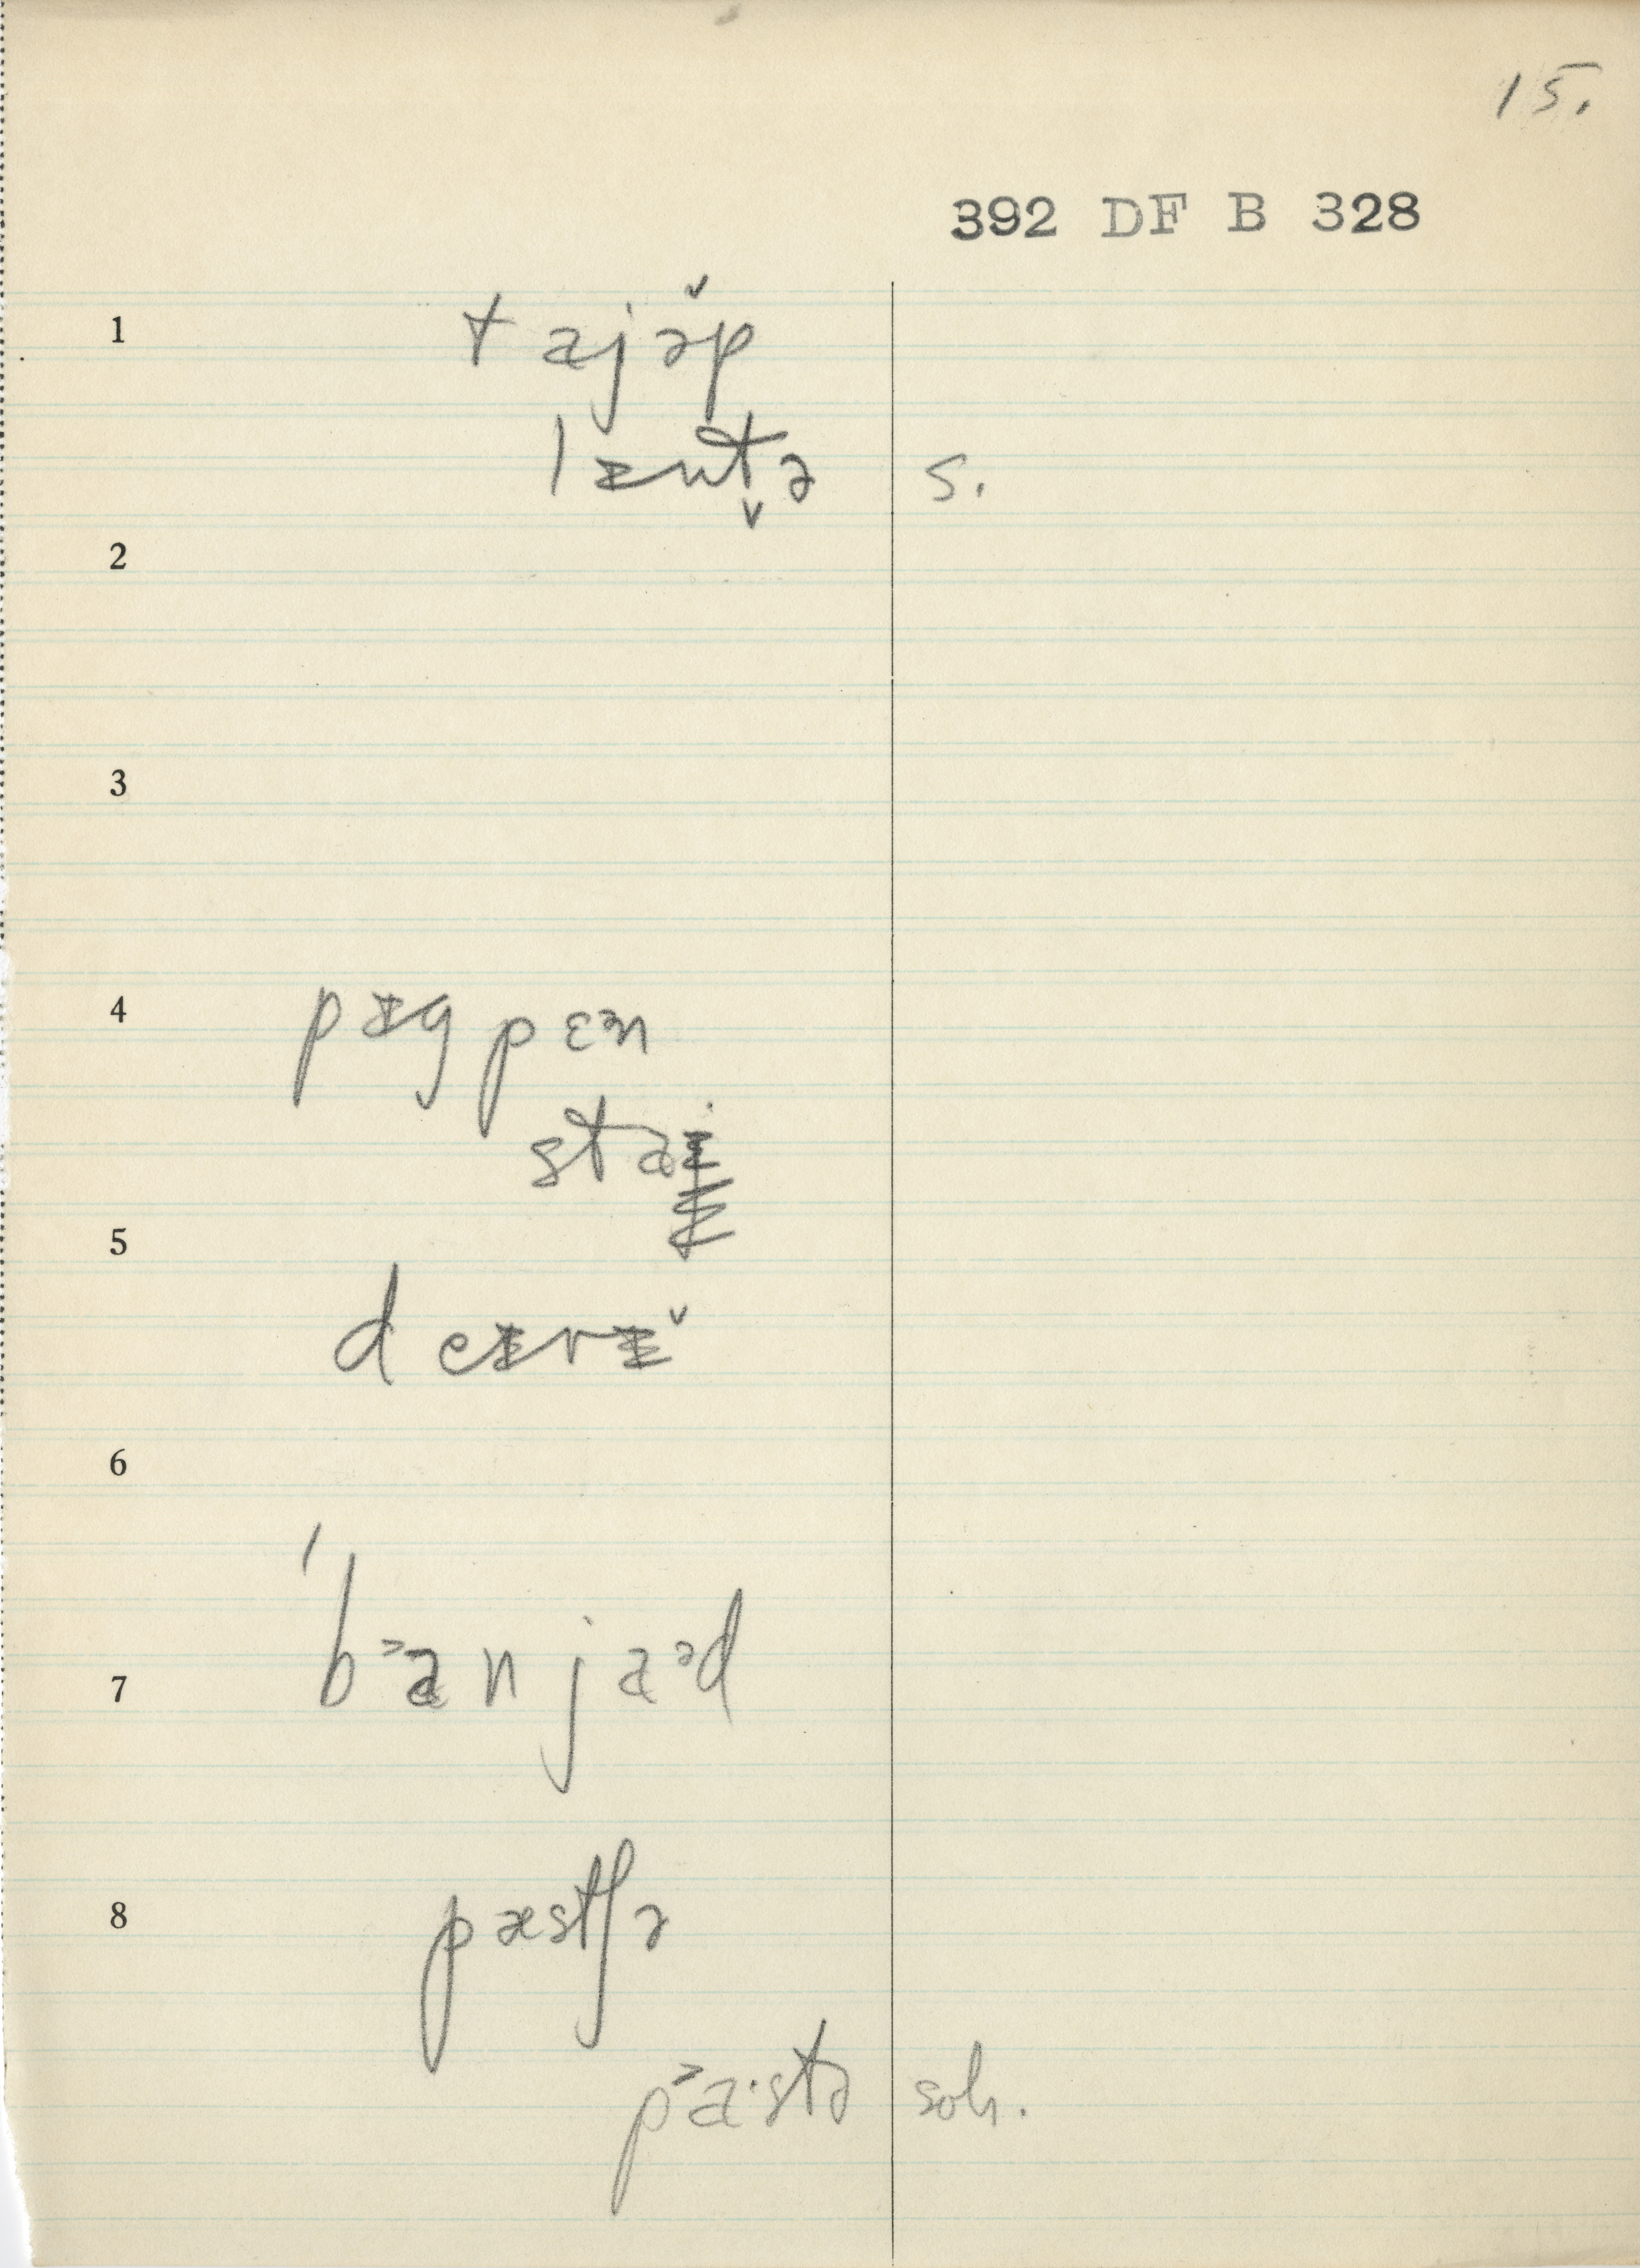 15.
392 DF B 328
1 t ajə̌p
lɪnt̬ə s.
2
3
4 pɪg pɛᵊn
staɨ
5
deɨrɨ̌
6
'bᵊanjaᵊd
7
8 pæstʃə
pᵊa·stə soh.